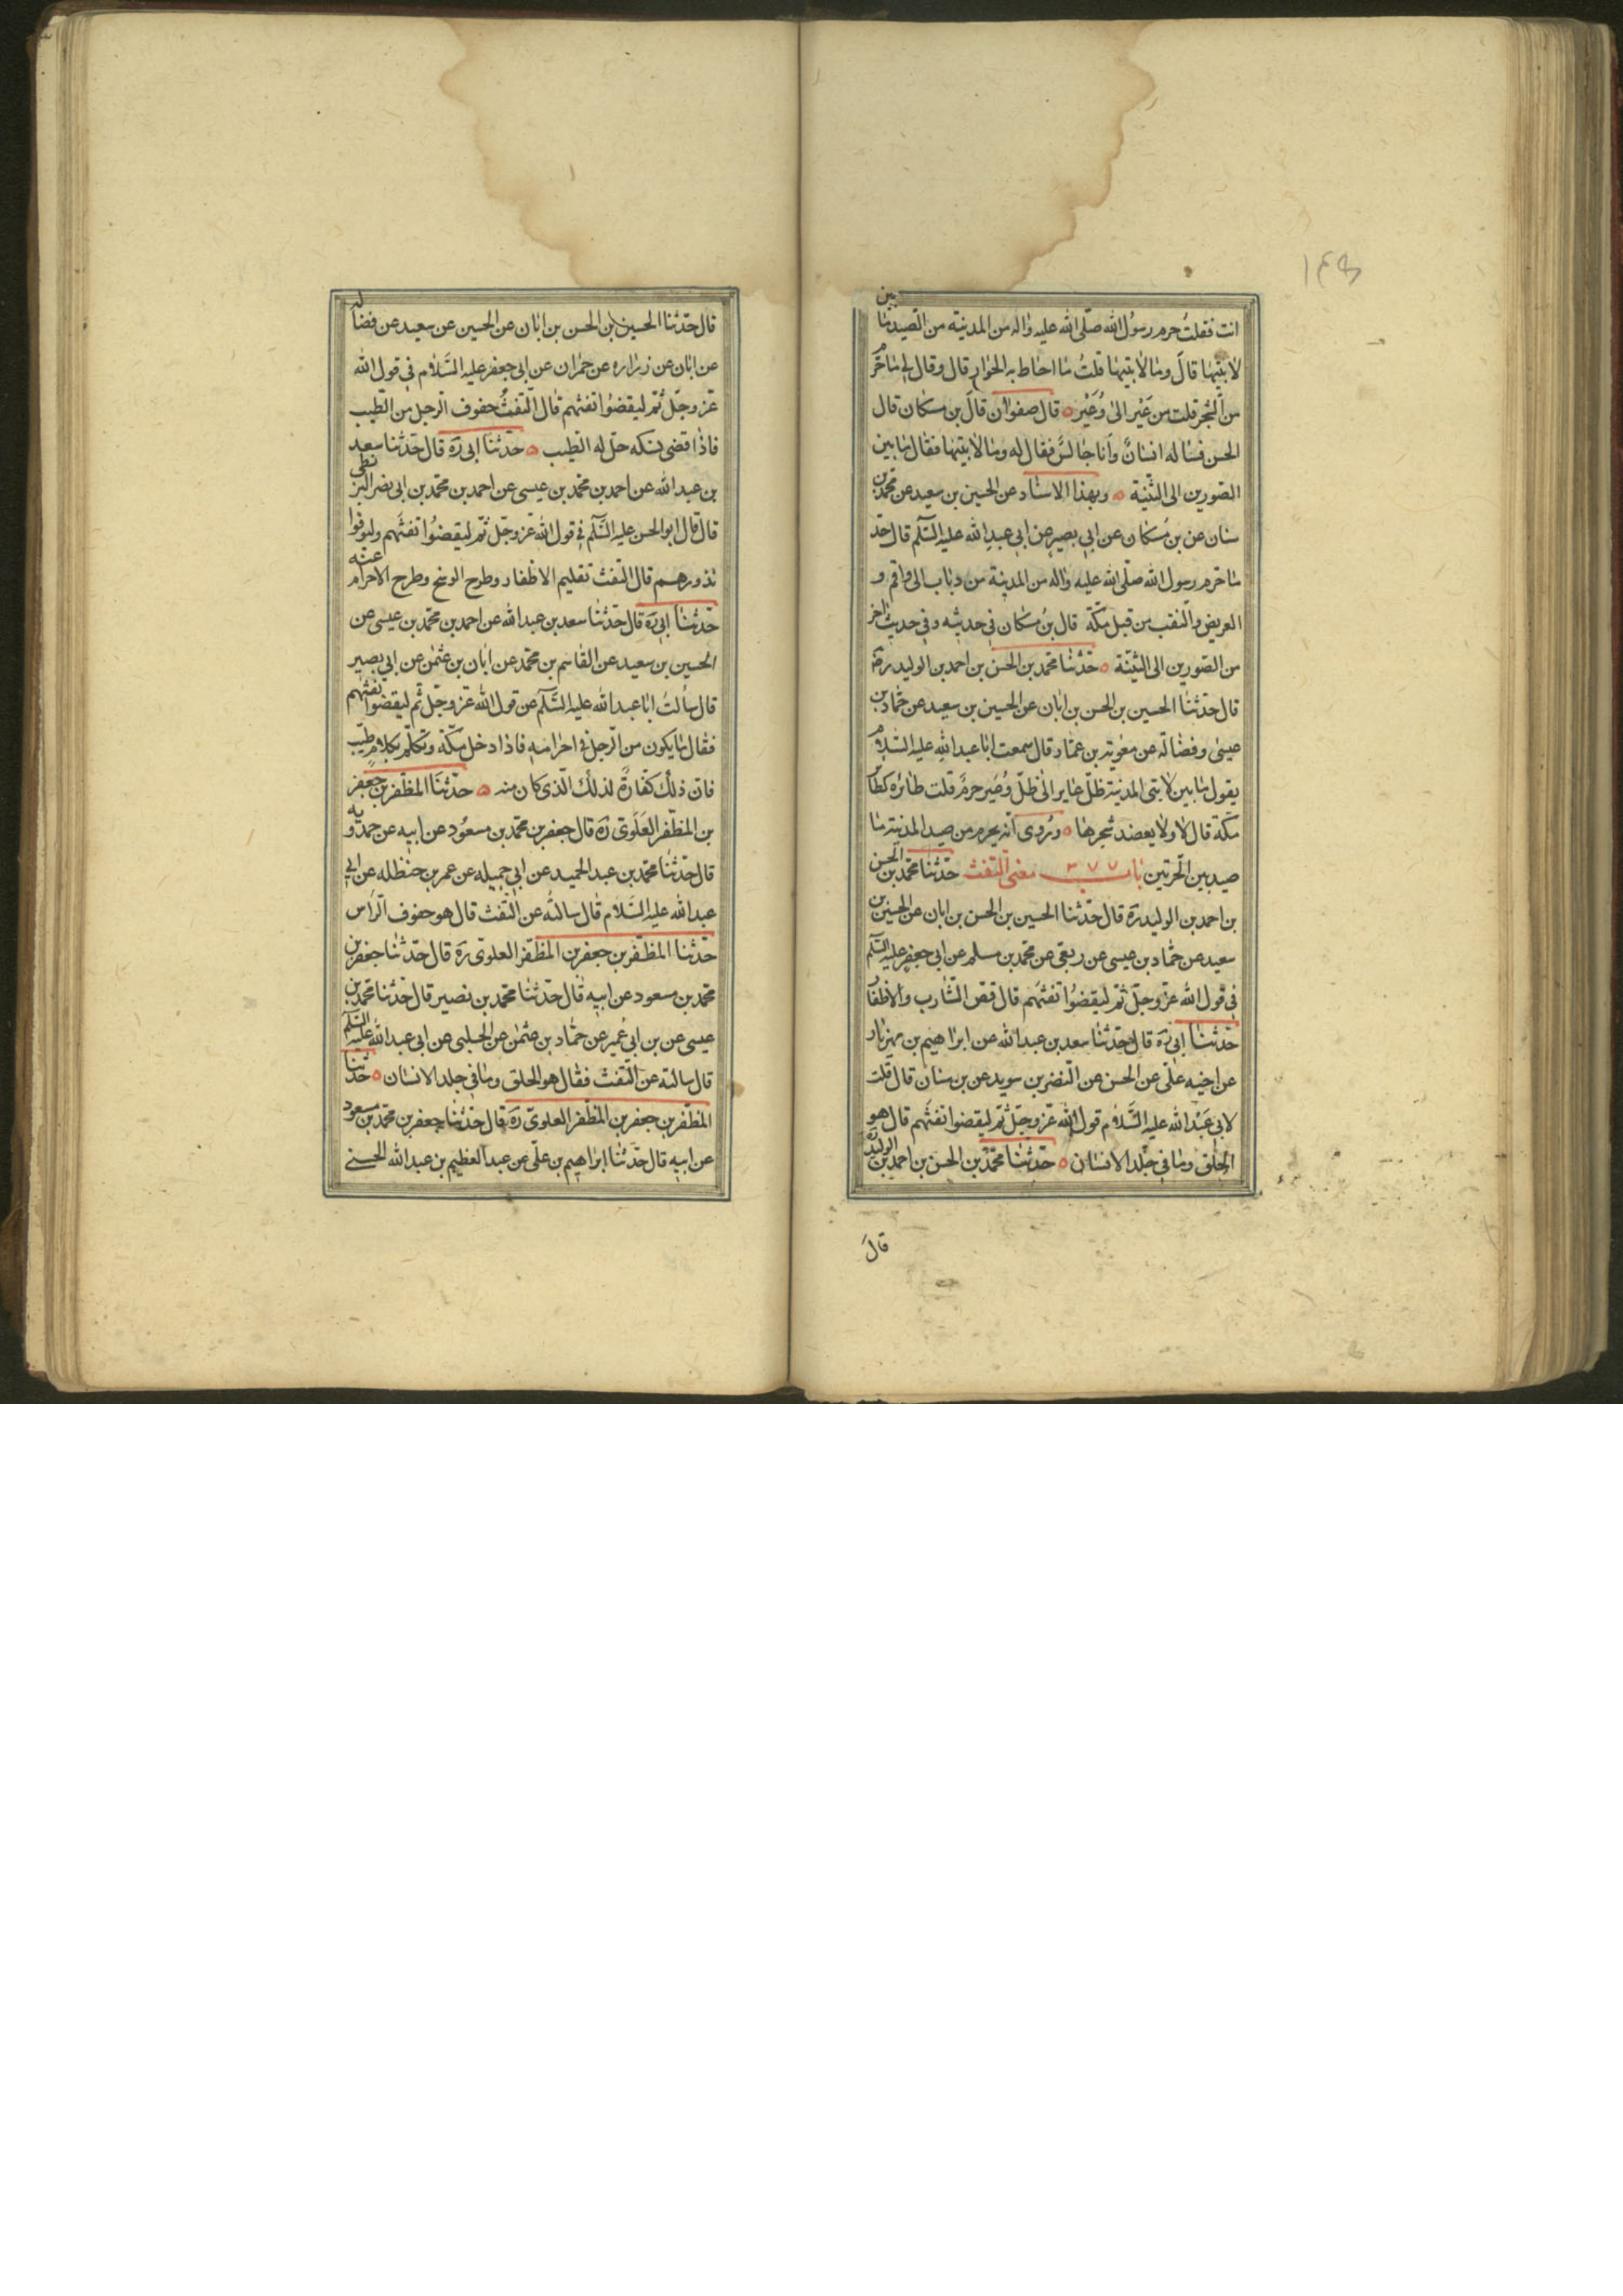 ١٤٥
انت فقلتُ حرم رسول الله صلّى الله عليه واله من المدينة من الصيد ما بين
لابتيها قالَ وما لابتيها قلتُ ما احاط به الحرار قال وقال لى ما حرّم
من الشجر قلت من عَيْر الىٰ وُعَيْر ه قال صفوان قالَ بن مسكان قال
الحسن فساله انسانٌ وأنا جالسٌ فقال له وما لابتيها فقال ما بين
الصّورين الى الثنيّة ه وبهذا الاسناد عن الحسين بن سعيد عن محمّد بن
سنان عن بن مُسكان عن ابى بصير عن ابى عبدِ الله عليه السّلم قال حَدّ
ما حرم رسول الله صلّى الله عليه واله من المدينة من ذباب الى واقم و
العريض والنّقب من قبل مكّة قال بن مُسكان فى حديثه وفى حديث اخر
من الصّورين الى الثنيّة ه حدّثنا محمّد بن الحسن بن احمد بن الوليد ره
قال حدّثنا الحسين بن الحسن بن ابان عن الحسين بن سعيد عن حمّاد بن
عيسٰى وفضالة عن معوية بن عمّار قال سمعت ابا عبد الله عليه السّلام
يقول ما بين لابتى المدينة ظلّ عاير الىٰ ظلّ وُعَير حرمٌ قلت طائره كطائر
مكّة قال لا ولا يعضد شجرها ه ورُوى أنّه يحرم من صيد المدينة ما
صيد بين الحرّتين باب ٣٧٧ معنى التّفث حدّثنا محمّد بن الحسن
بن احمد بن الوليد ره قال حدّثنا الحسين بن الحسن بن ابان عن الحسين بن
سعيد عن حمّاد بن عيسى عن ربعى عن محمّد بن مسلم عن ابى جعفر عليه السّلم
فى قول الله عزّ وجلّ ثمّ ليقضُوا تفثهم قال قصّ الشّارب والاظفار
حدّثنا ابى ره قال حدّثنا سعد بن عبد الله عن ابراهيم بن مهزيار
عن اخيه علىّ عن الحسن عن النّضر بن سويد عن بن سنان قال قلت
لابى عَبْد الله عليه السَّلام قول الله عزّ وجلّ ثمّ ليقضوا تفثهم قال هو
الحلق وما فى جلد الانسان ه حدّثنا محمّد بن الحسن بن احمد بن الوليد ره
قالَ
قال حدّثنا الحسين بن الحسن بن ابان عن الحسين عن سعيد عن فضالة
عن ابان عن زراره عن حمران عن ابى جعفر عليه السَّلام فى قول الله
عزّ وجلّ ثمّ ليقضُوا تفثهم قال التّفثُ حفوف الرّجل من الطّيب
فاذا قضى نسكه حلّ له الطّيب ه حدّثنا ابى ره قال حدّثنا سعد
بن عبد الله عن احمد بن محمّد بن عيسى عن احمد بن محمّد بن ابى نصر البزنطى
قال قال ابو الحسن عليه السّلم فى قول الله عزّ وجلّ ثمّ ليقضُوا تفثهم وليوفوا
نذورهم قال التّفث تقليم الاظفار وطرح الوسخ وطرح الاحرام عنه
حدّثنا ابى ره قال حدّثنا سعد بن عبد الله عن احمد بن محمّد بن عيسى عن
الحسين بن سعيد عن القاسم بن محمّد عن ابان بن عثمٰن عن ابى بصير
قال سألتُ ابا عبد الله عليه السّلم عن قول الله عزّ وجلّ ثمّ ليقضوا تفثهم
فقال ما يكون من الرّجل فى احرامه فاذا دخل مكّة وتكلّم بكلامٍ طيّب
فانّ ذلك كفّارةً لذلك الّذى كان منه ه حدّثنا المظفّر بن جعفر
بن المظفّر العَلَوىّ ره قال جعفر بن محمّد بن مسعُود عن ابيه عن حمدويه
قال حدّثنا محمّد بن عبد الحميد عن ابى جميله عن عمر بن حنظله عن ابى
عبد الله عليه السّلام قال سالتُه عن التّفث قال هو حفوف الرّاس
حدّثنا المظفّر بن جعفر بن المظفّر العلوىّ ره قال حدّثنا جعفر بن
محمّد بن مسعود عن ابيه قال حدّثنا محمّد بن نصير قال حدّثنا محمّد بن
عيسى عن بن ابى عُمير عن حمّاد بن عثمٰن عن الحلبى عن ابى عبد الله عليه السّلم
قال سالته عن التّفث فقال هو الحلق وما فى جلد الانسان ه حدّثنا
المظفّر بن جعفر بن المظفّر العلوىّ ره قال حدّثنا جعفر بن محمّد بن مسعود
عن ابيه قال حدّثنا ابراهيم بن علىّ عن عبد العظيم بن عبد الله الحسنى